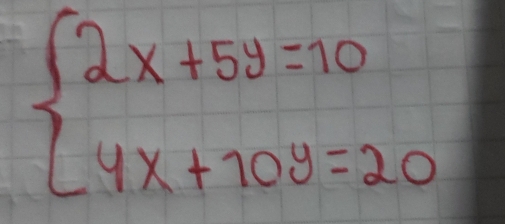 2x+5y=10
4x+10y=20